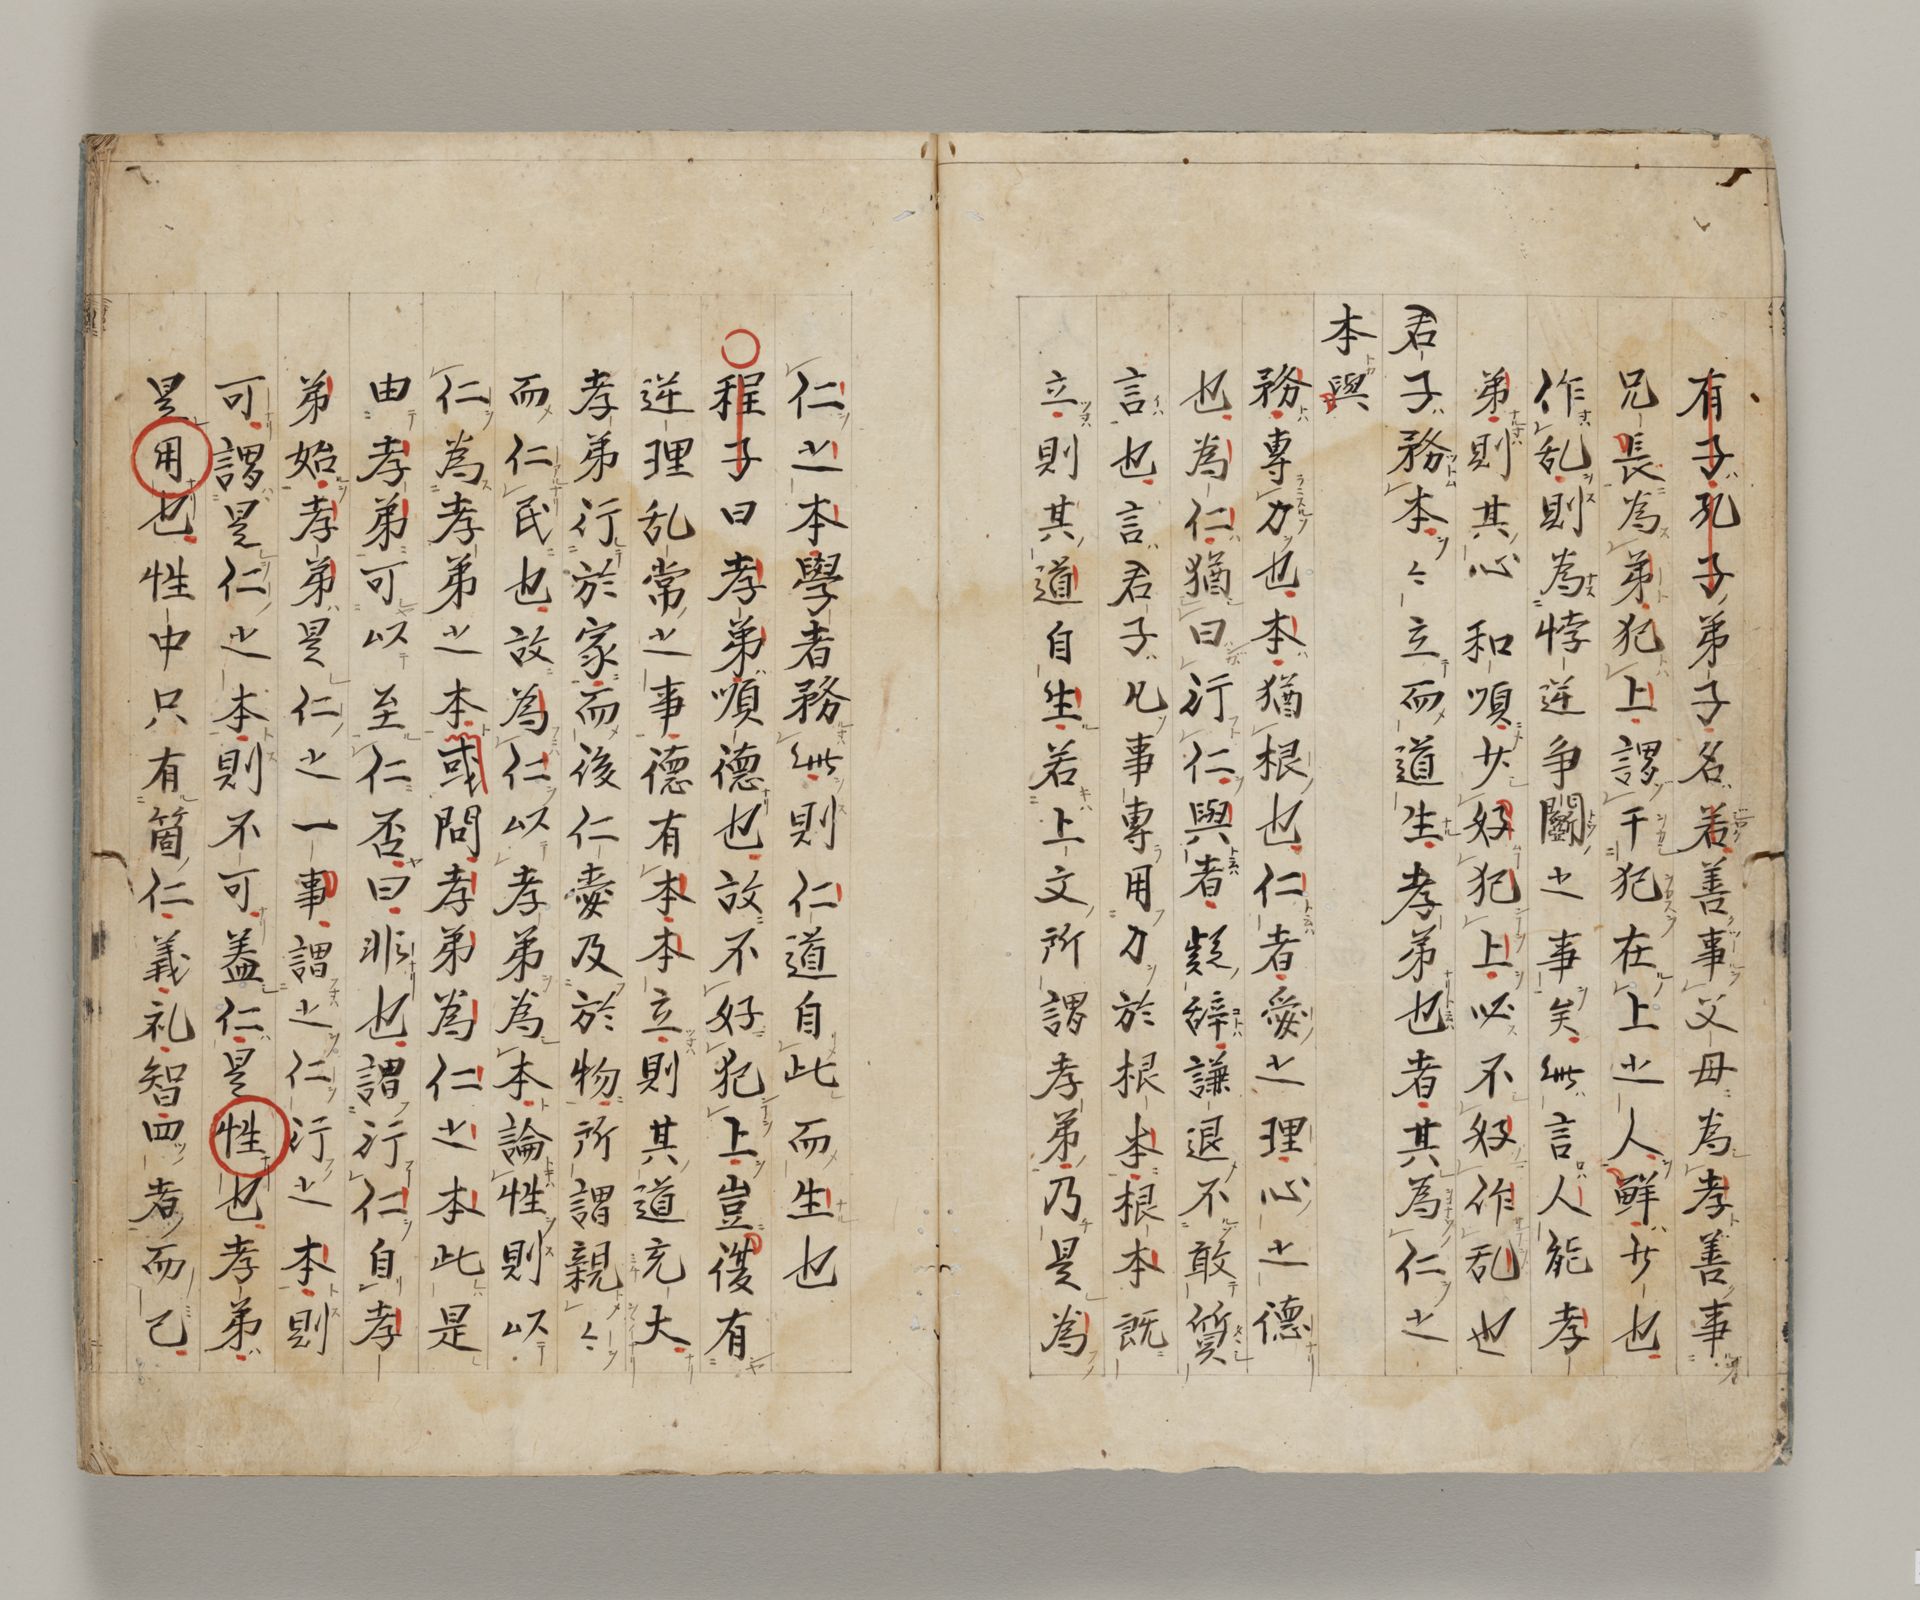 有子孔子弟子名若善事父母為孝善事
兄長為弟犯上謂干犯在上之人鮮少也
作乱則為悖逆争闘之事矣此言人能孝
弟則其心和順少好犯上必不好作乱也
君子務本々立而道生孝弟也者其為仁之
本與
務專力也本猶根也仁者愛之理心之德
也為仁猶曰行仁與者疑辞謙退不敢質
言也言君子凡事專用力於根本根本既
立則其道自生若上文所謂孝弟乃是為
仁之本學者務此則仁道自此而生也
○程子曰孝弟順德也故不好犯上豈復有
逆理乱常之事德有本本立則其道充大
孝弟行於家而後仁愛及於物所謂親々
而仁民也故為仁以孝弟為本論性則以
仁為孝弟之本或問孝弟為仁之本此是
由孝弟可以至仁否曰非也謂行仁自孝
弟始孝弟是仁之一事謂之仁行之本則
可謂是仁之本則不可蓋仁是性也孝弟
是用也性中只有箇仁義礼智四者而已